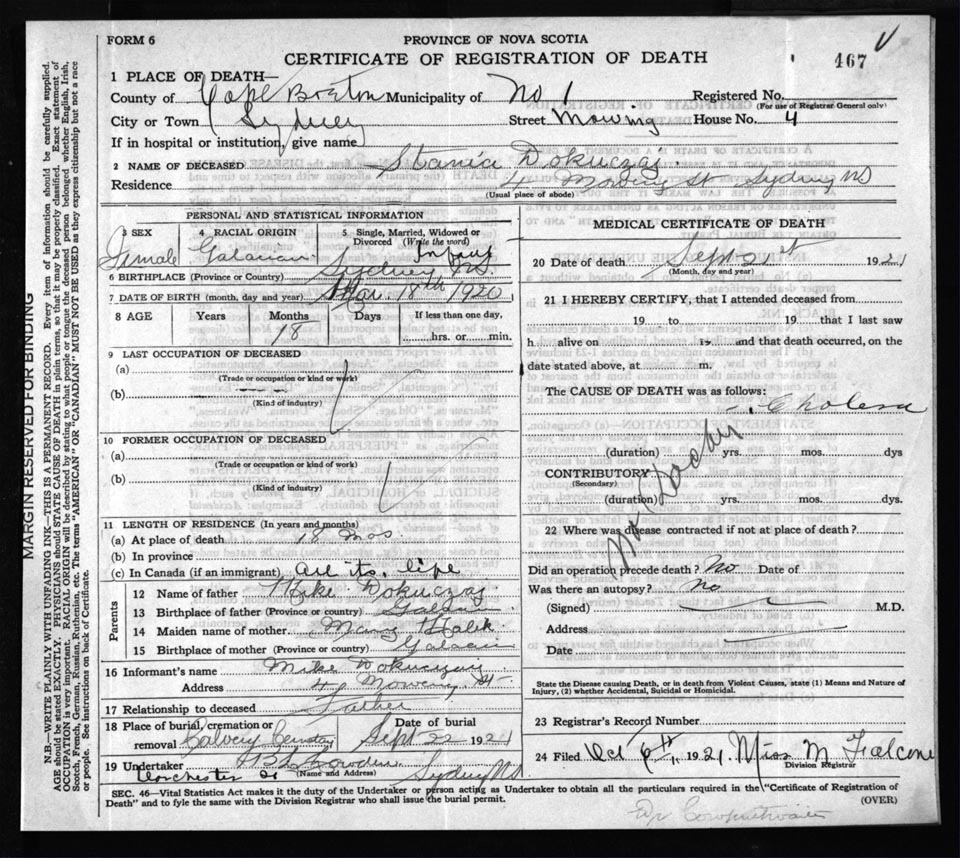 FORM 6
PROVINCE OF NOVA SCOTIA
CERTIFICATE OF REGISTRATION OF DEATH
467
1 PLACE OF DEATH—
County of Cape Breton Municipality of No 1 Registered No.
(For use of Registrar General only)
City or Town Sydney Street Mowing House No. 4
If in hospital or institution, give name
2 NAME OF DECEASED Stania Dokuczaj
Residence 4 St Sydney NS
(Usual place of abode)
PERSONAL AND STATISTICAL INFORMATION
3 SEX 4 RACIAL ORIGIN 5 Single, Married, Widowed or Divorced (Write the word)
Female Galacian Infant
6 BIRTHPLACE (Province or Country) Sydney NS.
7 DATE OF BIRTH (month, day and year) Mar. 18th 1920
8 AGE Years Months Days If less than one day,
18 hrs. or min.
9 LAST OCCUPATION OF DECEASED
(a)
(Trade or occupation or kind or work)
(b)
(Kind of industry)
10 FORMER OCCUPATION OF DECEASED
(a)
(Trade or occupation or kind of work)
(b)
(Kind of industry)
11 LENGTH OF RESIDENCE (In years and months)
(a) At place of death 18 Mos.
(b) In province
(c) In Canada (if an immigrant) all its life
Parents
12 Name of father Mike Dokuczaj
13 Birthplace of father (Province or country)
14 Maiden name of mother Mary Halik
15 Birthplace of mother (Province or country)
16 Informant's name Mike Dokuczaj
Address 4 St
17 Relationship to deceased Father
18 Place of burial, cremation or removal Date of burial
Calvery Cemetery Sept 22 1921
19 Undertaker
(Name and Address)
Dorchester St Sydney NS.
MEDICAL CERTIFICATE OF DEATH
20 Date of death Sept 21st 1921
(Month, day and year)
21 I HEREBY CERTIFY, that I attended deceased from
19 to 19 that I last saw
h alive on 19 and that death occurred, on
date stated above, at m.
The CAUSE OF DEATH was as follows:
Cholera
(duration) yrs. mos. dys
CONTRIBUTORY
(Secondary)
(duration) yrs. mos. dys.
No Doctor
22 Where was disease contracted if not at place of death?
Did an operation precede death? No Date of
Was there an autopsy? No
(Signed) M.D.
Address
Date
State the Disease causing Death, or in death from Violent Causes, state (1) Means and Nature of
Injury, (2) whether Accidental, Suicidal or Homicidal.
23 Registrar's Record Number
24 Filed Oct 6th, 1921. Miss M Falcone
Division Registrar
SEC. 46—Vital Statistics Act makes it the duty of the Undertaker or person acting as Undertaker to obtain all the particulars required in the "Certificate of Registration of
Death" and to fyle the same with the Division Registrar who shall issue the burial permit.
(OVER)
MARGIN RESERVED FOR BINDING
N.B.—WRITE PLAINLY WITH UNFADING INK—THIS IS A PERMANENT RECORD. Every item of Information should be carefully supplied.
AGE should be stated EXACTLY. PHYSICIANS should STATE CAUSE OF DEATH in plain terms, so that it may be properly classified. Exact statement of
OCCUPATION is very important. RACIAL ORIGIN will be described by stating to what people or tongue the deceased person belonged, whether English, Irish,
Scotch, French, German, Russian, Ruthenian, etc. The terms "AMERICAN" or "CANADIAN" MUST NOT BE USED as they express citizenship but not a race
or people. See instructions on back of Certificate.